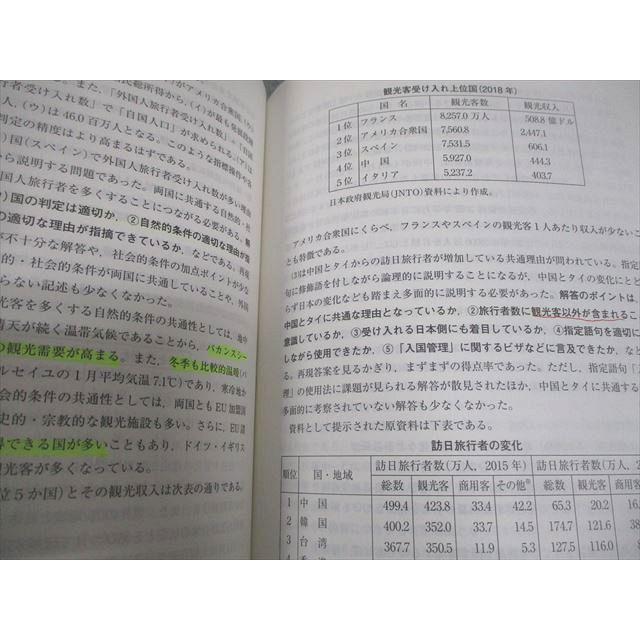 がアメリカ合衆国、
総所得から、(イ)が最も発展
者受け入れ数」で「自国人口」が求められる。
人、(ウ)は46.0百万人となる。このような指標操作
判定の精度はより高まるはずである。
国(スペイン)で外国人旅行者受け入れ数が多い理由
から説明する問題であった。両国に共通する自然的・社
国人旅行者を多くすることにつながる必要がある。解
)国の判定は適切か、②自然的条件の適切な理由が指
の適切な理由が指摘できているか、などである。再現
が不十分な解答や、社会的条件の加点ポイントが少な
・社会的条件が両国に共通していることや、外国
らない記述も少なくなかった。
光客を多くする自然的条件の共通性としては、地中
晴天が続く温帯気候であることから、バカンスシー
の観光需要が高まる。また、冬季も比較的温暖(バ
ルセイユの1月平均気温7.1℃)であり、寒冷地か
会的条件の共通性としては、両国ともEU加盟国
史的・宗教的な観光施設も多い。さらに、EU諸
得できる国が多いこともあり、ドイツ・イギリス
光客が多くなっている。
立5か国)とその観光収入は次表の通りである。
観光客受け入れ上位国(2018年)
国 名 観光客数 観光収入
1位 フランス 8,257.0万人 508.8億ドル
2位 アメリカ合衆国 7,560.8 2,447.1
3位 スペイン 7,531.5 606.1
4位 中 国 5,927.0 444.3
5位 イタリア 5,237.2 403.7
日本政府観光局(JNTO)資料により作成。
アメリカ合衆国にくらべ、フランスやスペインの観光客1人あたり収入が少ないこ
とも特徴である。
(3)は中国とタイからの訪日旅行者が増加している共通理由が問われている。指定
句に修飾語を付しながら論理的に説明することになるが、中国とタイの変化にとど
らず日本の変化なども踏まえ多面的に説明する必要があった。解答のポイントは、
中国とタイに共通な理由となっているか、②旅行者数に観光客以外が含まれるこ
意識しているか、③受け入れる日本側にも着目しているか、④指定語句を適切に
しながら使用できたか、⑤「入国管理」に関するビザなどに言及できたか、など
る。再現答案を見るかぎり、まずまずの得点率であった。ただし、指定語句「入
理」の使用法に課題が見られる解答が散見されたほか、中国とタイに共通する
多面的に考察されていない解答も少なくなかった。
資料として提示された原資料は下表である。
訪日旅行者の変化
順位 国・地域 訪日旅行者数(万人、2015年) 訪日旅行者数(万人、2
総数 観光客 商用客 その他※ 総数 観光客 商用客
1 中 国 499.4 423.8 33.4 42.2 65.3 20.2 16.
2 韓 国 400.2 352.0 33.7 14.5 174.7 121.6 38
3 台 湾 367.7 350.5 11.9 5.3 127.5 116.0 8